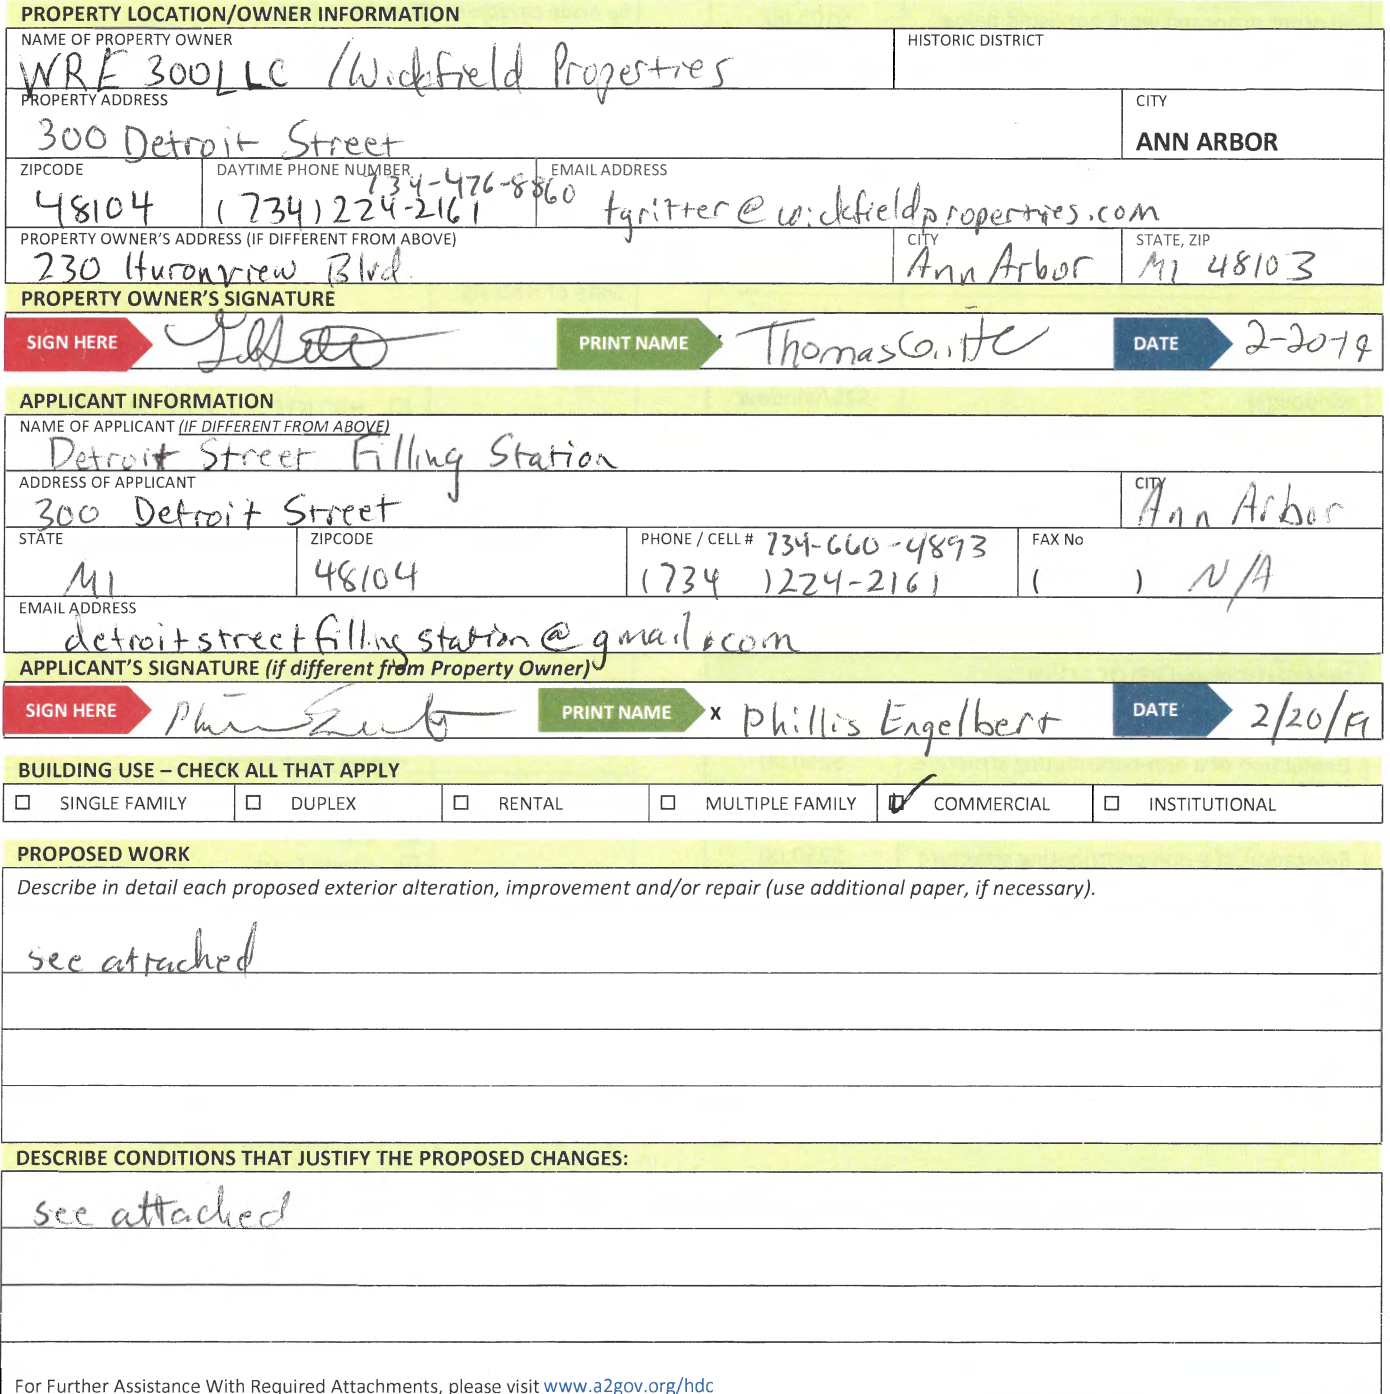 PROPERTY LOCATION/OWNER INFORMATION
NAME OF PROPERTY OWNER HISTORIC DISTRICT
WRE 300 LLC / Wickfield Properties
PROPERTY ADDRESS CITY
300 Detroit Street ANN ARBOR
ZIPCODE DAYTIME PHONE NUMBER EMAIL ADDRESS
734-476-8860
48104 (734) 224-2161 tgritter@wickfieldproperties.com
PROPERTY OWNER'S ADDRESS (IF DIFFERENT FROM ABOVE) CITY STATE, ZIP
230 Huronview Blvd. Ann Arbor MI 48103
PROPERTY OWNER'S SIGNATURE
SIGN HERE PRINT NAME Thomas Gritter DATE 2-20-19
APPLICANT INFORMATION
NAME OF APPLICANT (IF DIFFERENT FROM ABOVE)
Detroit Street Filling Station
ADDRESS OF APPLICANT CITY
300 Detroit Street Ann Arbor
STATE ZIPCODE PHONE / CELL # 734-660-4893 FAX No
MI 48104 (734 ) 224-2161 ( ) N/A
EMAIL ADDRESS
detroitstreetfillingstation@gmail.com
APPLICANT'S SIGNATURE (if different from Property Owner)
SIGN HERE PRINT NAME X Phillis Engelbert DATE 2/20/19
BUILDING USE – CHECK ALL THAT APPLY
☐ SINGLE FAMILY ☐ DUPLEX ☐ RENTAL ☐ MULTIPLE FAMILY ☑ COMMERCIAL ☐ INSTITUTIONAL
PROPOSED WORK
Describe in detail each proposed exterior alteration, improvement and/or repair (use additional paper, if necessary).
see attached
DESCRIBE CONDITIONS THAT JUSTIFY THE PROPOSED CHANGES:
see attached
For Further Assistance With Required Attachments, please visit www.a2gov.org/hdc